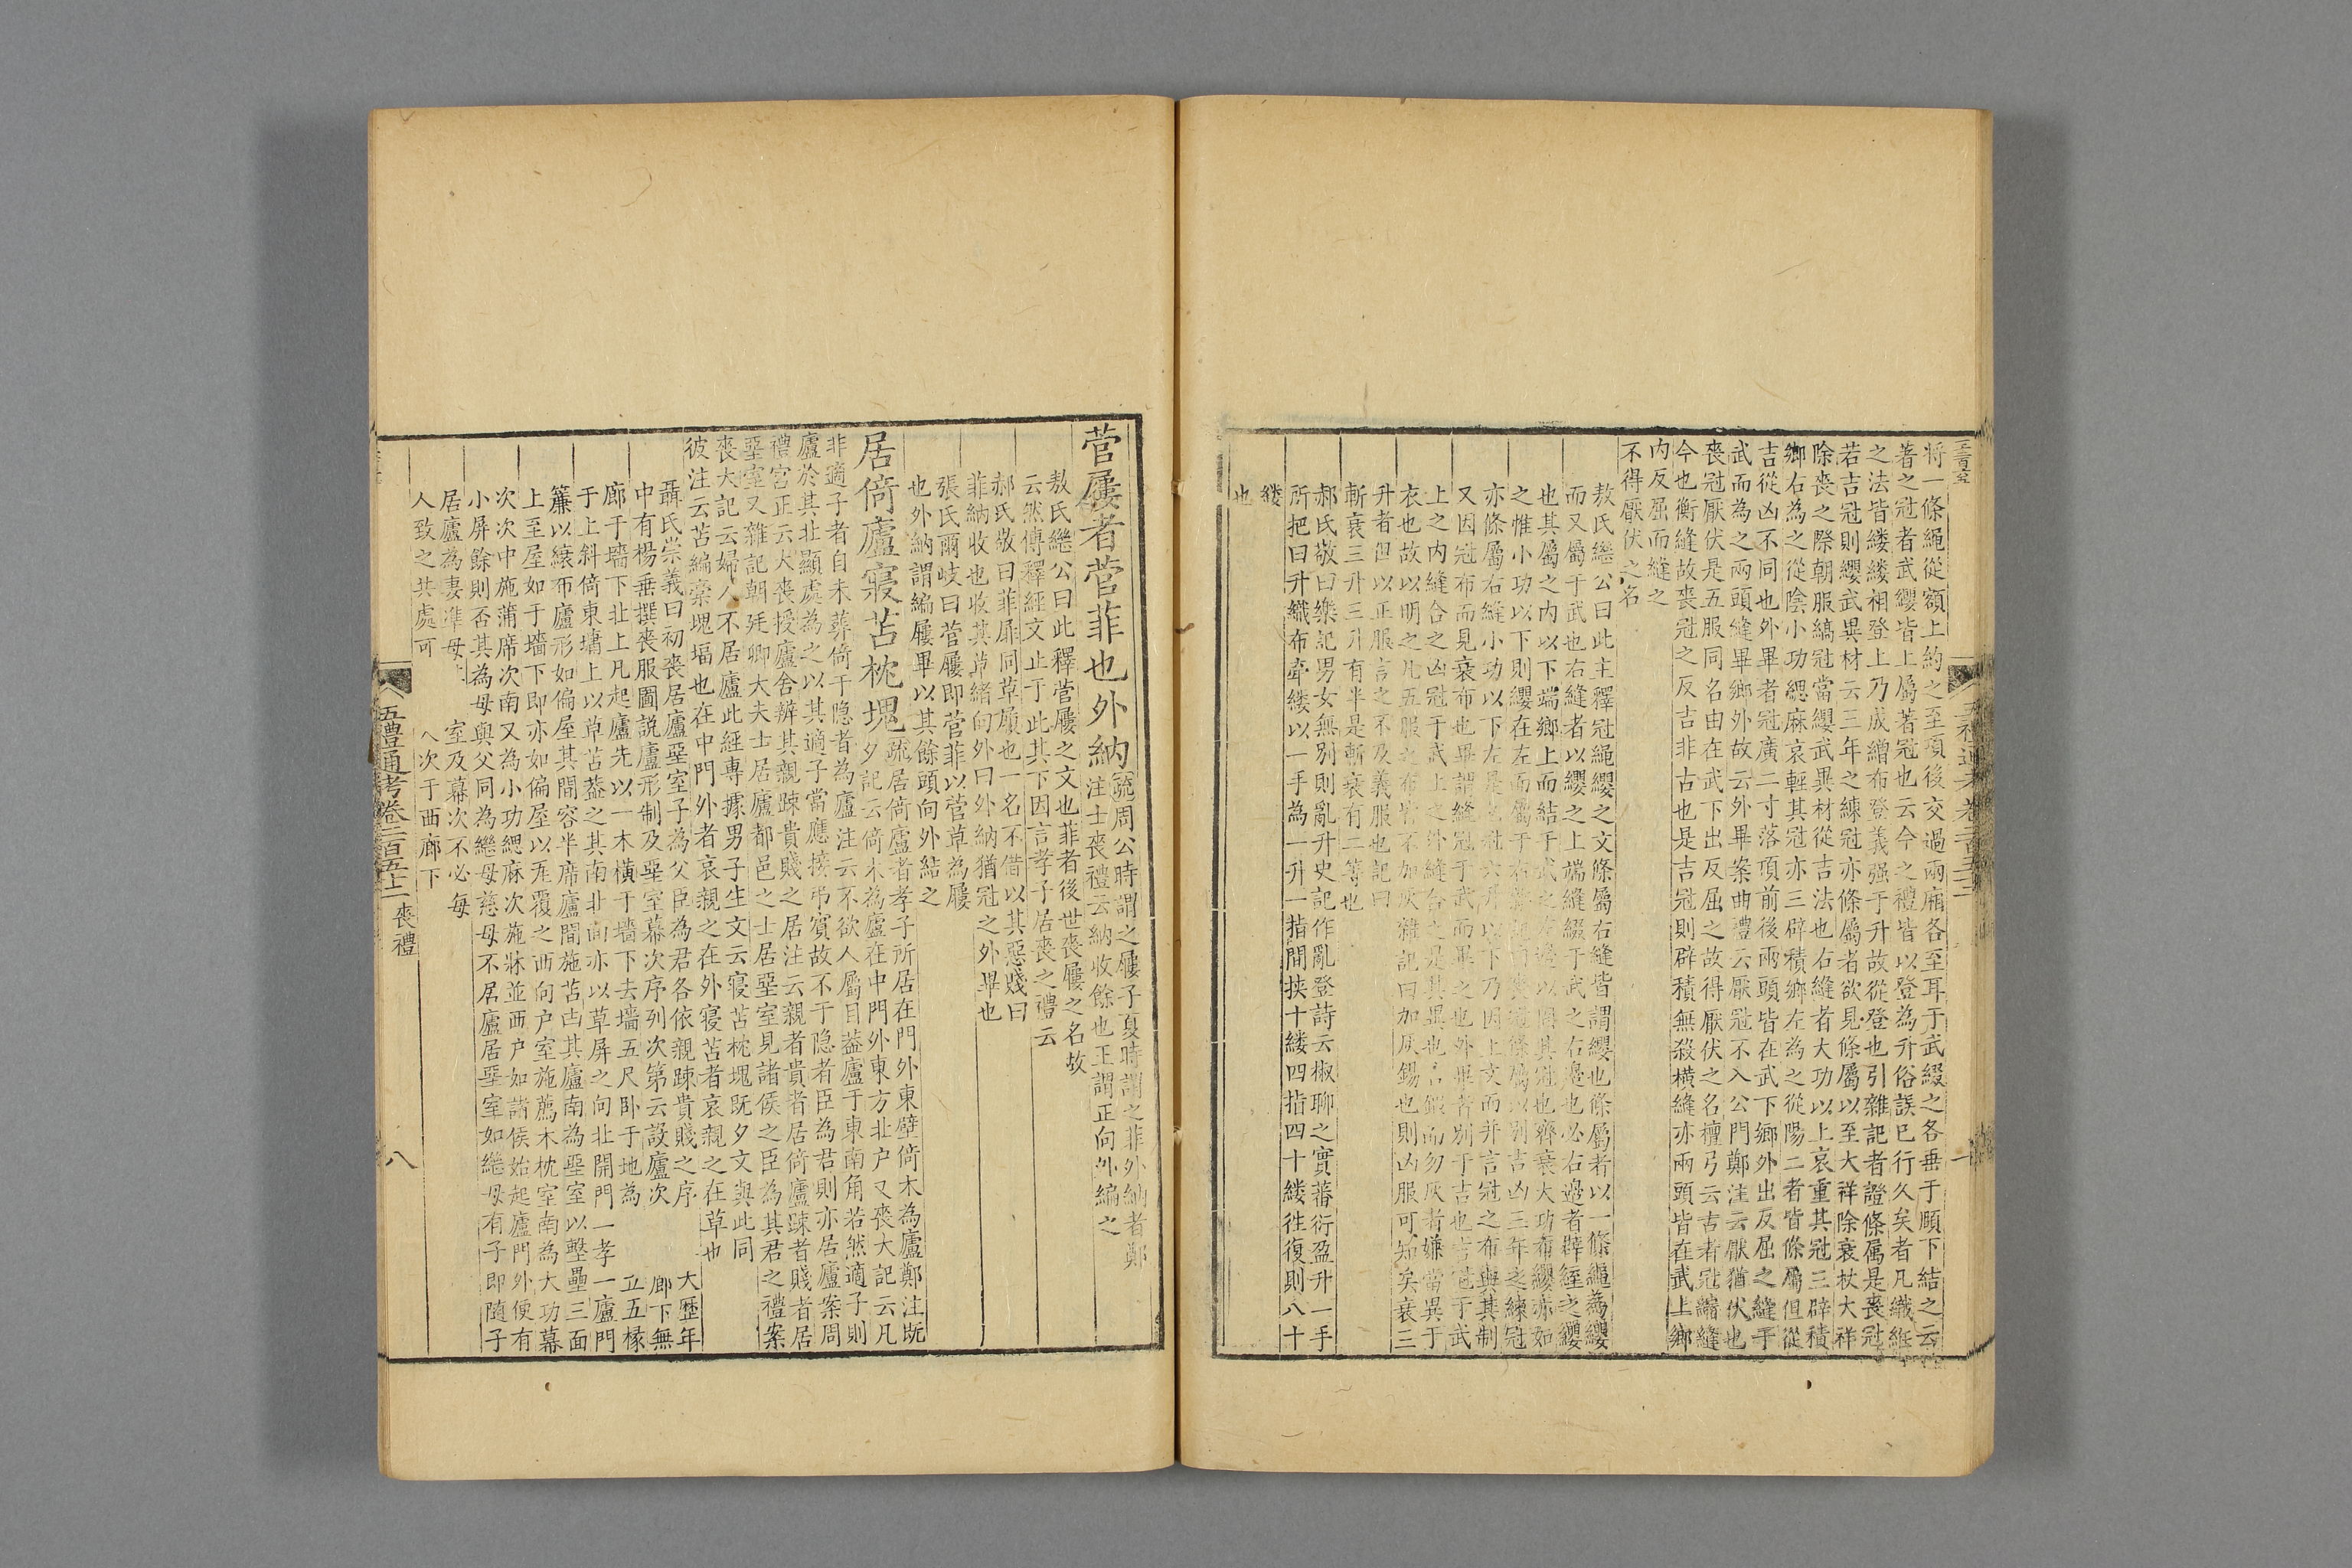 將一條繩從額上約之至項後交過兩廂各至耳于武綴之各垂于頤下結之云
著之冠者武纓皆上屬著冠也云今之禮皆以登為升俗誤已行久矣者凡織絍
之法皆縷縷相登上乃成繒布登義强于升故從登也引雜記者證條屬是喪冠
若吉冠則纓武異材云三年之練冠亦條屬者欲見條屬以至大祥除衰杖大祥
除喪之際朝服縞冠當纓武異材從吉法也右縫者大功以上哀重其冠三辟積
鄉右為之從陰小功緦麻哀輕其冠亦三辟積鄉左為之從陽二者皆條屬但從
吉從凶不同也外畢者冠廣二寸落項前後兩頭皆在武下鄉外出反屈之縫于
武而為之兩頭縫畢鄉外故云外畢案曲禮云厭冠不入公門鄭注云厭猶伏也
喪冠厭伏是五服同名由在武下出反屈之故得厭伏之名檀弓云古者冠縮縫
今也衡縫故喪冠之反吉非古也是吉冠則辟積無殺橫縫亦兩頭皆在武上鄉
内反屈而縫之
不得厭伏之名
敖氏繼公曰此主釋冠繩纓之文條屬右縫皆謂纓也條屬者以一條繩為纓
而又屬于武也右縫者以纓之上端縫綴于武之右邊也必右邊者辟絰之纓
也其屬之内以下端鄉上而結于武之左邊以固其冠也齊衰大功布纓亦如
之惟小功以下則纓在左而屬于右縫同其冠條屬以别吉凶三年之練冠
亦條屬右縫小功以下左是也冠六升以下乃因上文而并言冠之布與其制
又因冠布而見衰布也畢謂縫冠于武而畢之也外畢者别于吉也吉冠于武
上之内縫合之凶冠于武上之外縫合之是其異也言鍛而勿灰者嫌當異于
衣也故以明之凡五服之布皆不加灰雜記曰加灰錫也則凶服可知矣衰三
升者但以正服言之不及義服也記曰
斬衰三升三升有半是斬衰有二等也
郝氏敬曰樂記男女無别則亂升史記作亂登詩云椒聊之實蕃衍盈升一手
所把曰升織布牽縷以一手為一升一指間挾十縷四指四十縷徃復則八十
縷
也
菅屨者菅菲也外納疏周公時謂之屨子夏時謂之菲外納者鄭
注士喪禮云納收餘也王謂正向外編之
敖氏繼公曰此釋菅屨之文也菲者後世喪屨之名故
云然傳釋經文止于此其下因言孝子居喪之禮云
郝氏敬曰菲屝同草屨也一名不借以其惡賤曰
菲納收也收其草緒向外曰外納猶冠之外畢也
張氏爾岐曰菅屨即菅菲以菅草為屨
也外納謂編屨畢以其餘頭向外結之
居倚廬寢苫枕塊疏居倚廬者孝子所居在門外東壁倚木為廬鄭注旣
夕記云倚木為廬在中門外東方北户又喪大記云凡
非適子者自未葬倚于隐者為廬注云不欲人屬目葢廬于東南角若然適子則
廬於其北顯處為之以其適子當應接弔賓故不于隐者臣為君則亦居廬案周
禮宮正云大喪授廬舍辨其親疎貴賤之居注云親者貴者居倚廬疎者賤者居
堊室又雜記朝廷卿大夫士居廬都邑之士居堊室見諸侯之臣為其君之禮案
喪大記云婦人不居廬此經專據男子生文云寢苫枕塊旣夕文與此同
彼注云苫編槀塊堛也在中門外者哀親之在外寢苫者哀親之在草也
聶氏崇義曰初喪居廬堊室子為父臣為君各依親疎貴賤之序　大歷年
中有楊垂撰喪服圖説廬形制及堊室幕次序列次第云設廬次　廊下無
廊于墻下北上凡起廬先以一木橫于墻下去墻五尺卧于地為　立五椽
于上斜倚東墉上以草苫葢之其南北面亦以草屏之向北開門一孝一廬門
簾以縗布廬形如偏屋其間容半席廬間施苫凷其廬南為堊室以墼壘三面
上至屋如于墻下即亦如偏屋以瓦覆之西向户室施薦木枕室南為大功幕
次次中施蒲席次南又為小功緦麻次施牀並西户如諸侯始起廬門外便有
小屏餘則否其為母與父同為繼母慈母不居廬居堊室如繼母有子即隨子
居廬為妻準母　室及幕次不必每
人致之共處可　次于西廊下
五禮通考卷二百五十二　喪禮　八